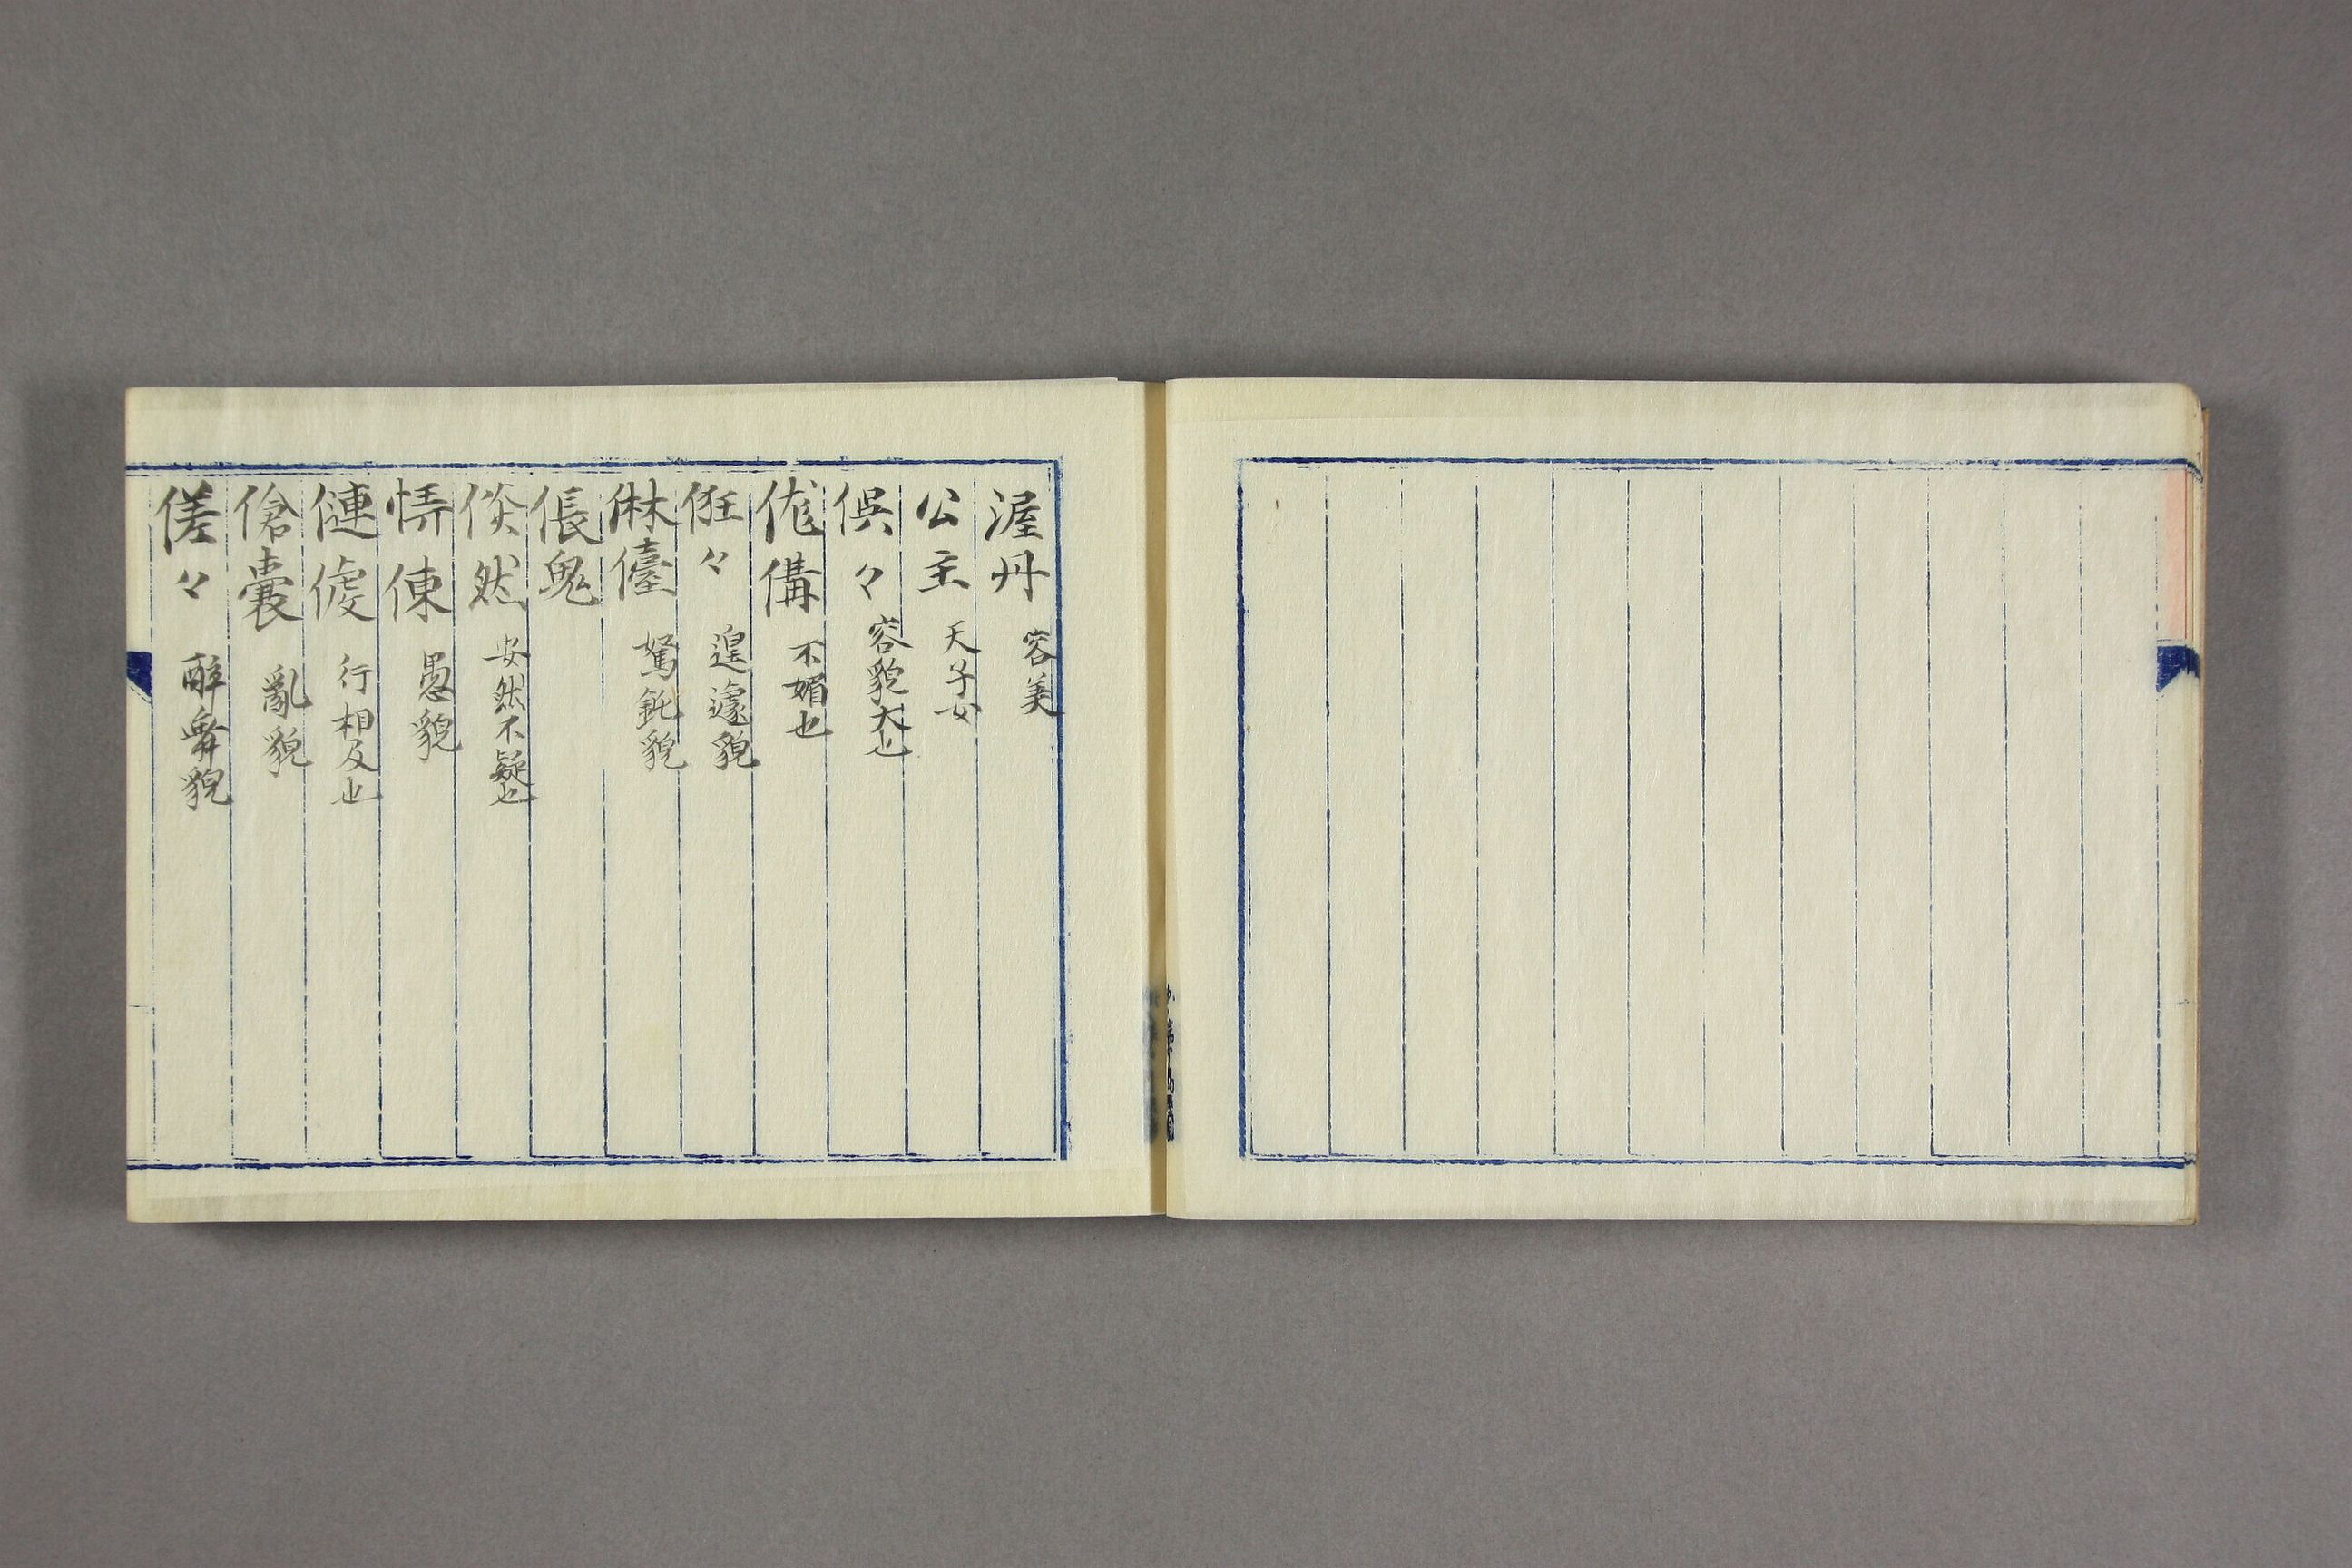 渥丹 容美
公主 天子女
俁々 容貌大也
傋 不媚也
俇々 遑遽貌
儓 駑鈍貌
倀鬼
倓然 安然不疑也
倲 愚貌
僆 行相及也
傖囊 亂貌
傞々 醉舞貌